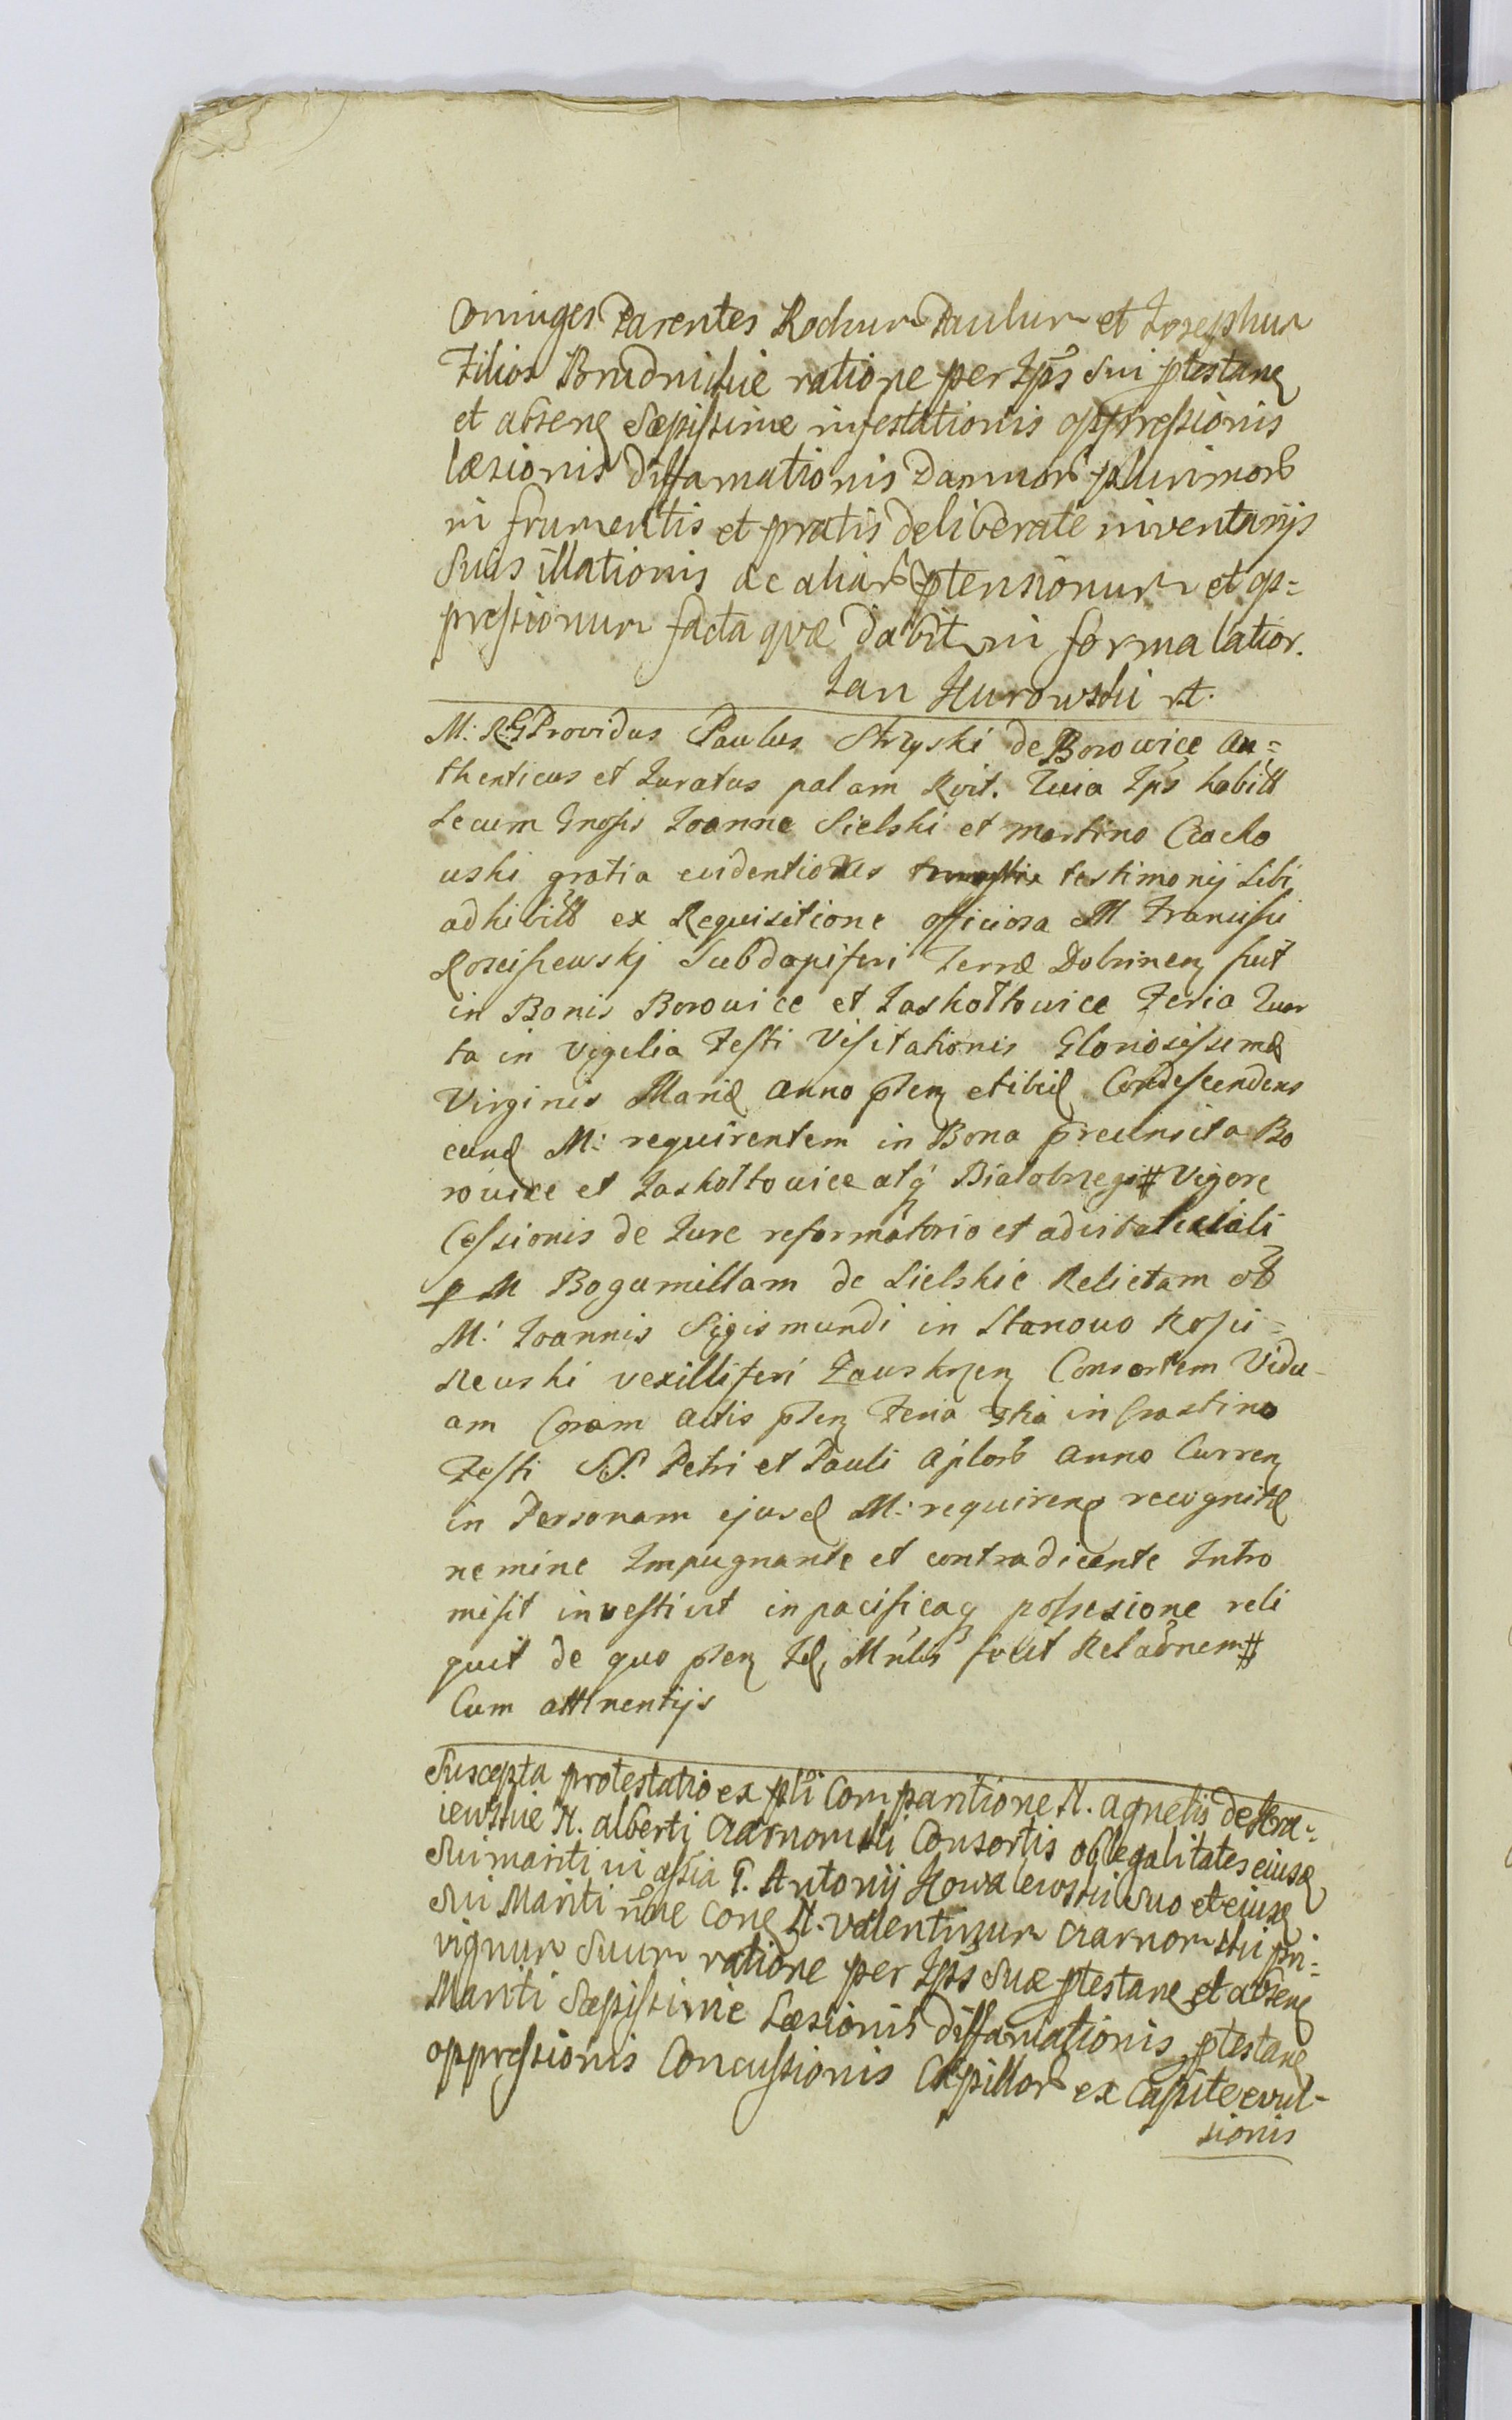 Coniuges Parentes Rochum Paulum et Josephum
Filios Brudnickie ratione per Ips sui ptestanę
et absenę sæpissime infestationis oppressionis
læsionis diffamationis Damnorb plurimorb
in frumentis et pratis deliberate inventarijs
suis illationis ac aliarb ptensionum et op=
pressionum facta qvæ dabit in forma latior.
Jan Hurowski rt.
M: R:G Providus Paulus Stryski de Borowice Au=
thenticus et Juratus palam Rvit. Quia Ips habitb
Secum Gnosis Joanne Sielski et Martino Czacho
wski gratia evidentioris testimonij Sibi
adhibitb ex Requisitione officiosa M Francisci
Rosciszewskj Subdapiferi Terræ Dobrinenę fuit
in Bonis Borowice et Jaskołtowice Feria Quar
ta in Vigilia Festi Visitationis Gloriosissimæ
Virginis Mariæ Anno pñenę et ibidę Condescendens
eundę M: requirentem in Bona præinsita Bo
rowice et Jaskołtowice atq Białobrzegi # Vigore
Cessionis de Jure reformatorio et advitalitiali
p M Bogumillam de Sielskie Relictam olb
M: Joannis Sigismundi in Stanowo Rosci=
szewski vexilliferi Zawskrzenę Consortem Vidu-
am Coram Actis pñenę Feria 3tia in Crastino
Festi S.S. Petri et Pauli Aplorb Anno Currenę
in Personam ejusdę M: requirenę recognitę
nemine Impugnante et contradicente Intro
misit investivit in pacificaq possesione reli
quit de quo pñenę Idę Mnlis fecit Relaõnem #
Cum attinentijs
Suscepta protestatio ex pli Comparitione N. Agnetis de
iewskie N. Alberti Czarnomski Consortis ob legalitates eiusdę
sui mariti in assia G. Antonij Kowalewski suo et eiusdę
sui Mariti nõie Conę N. Valentinum Czarnomski pri=
vignum Suum ratione per Ips suæ ptestanę et absenę
Mariti sæpissime Læsionis diffamationis ptestanę
oppressionis Concussionis Capillorb ex Capite evul-
sionis